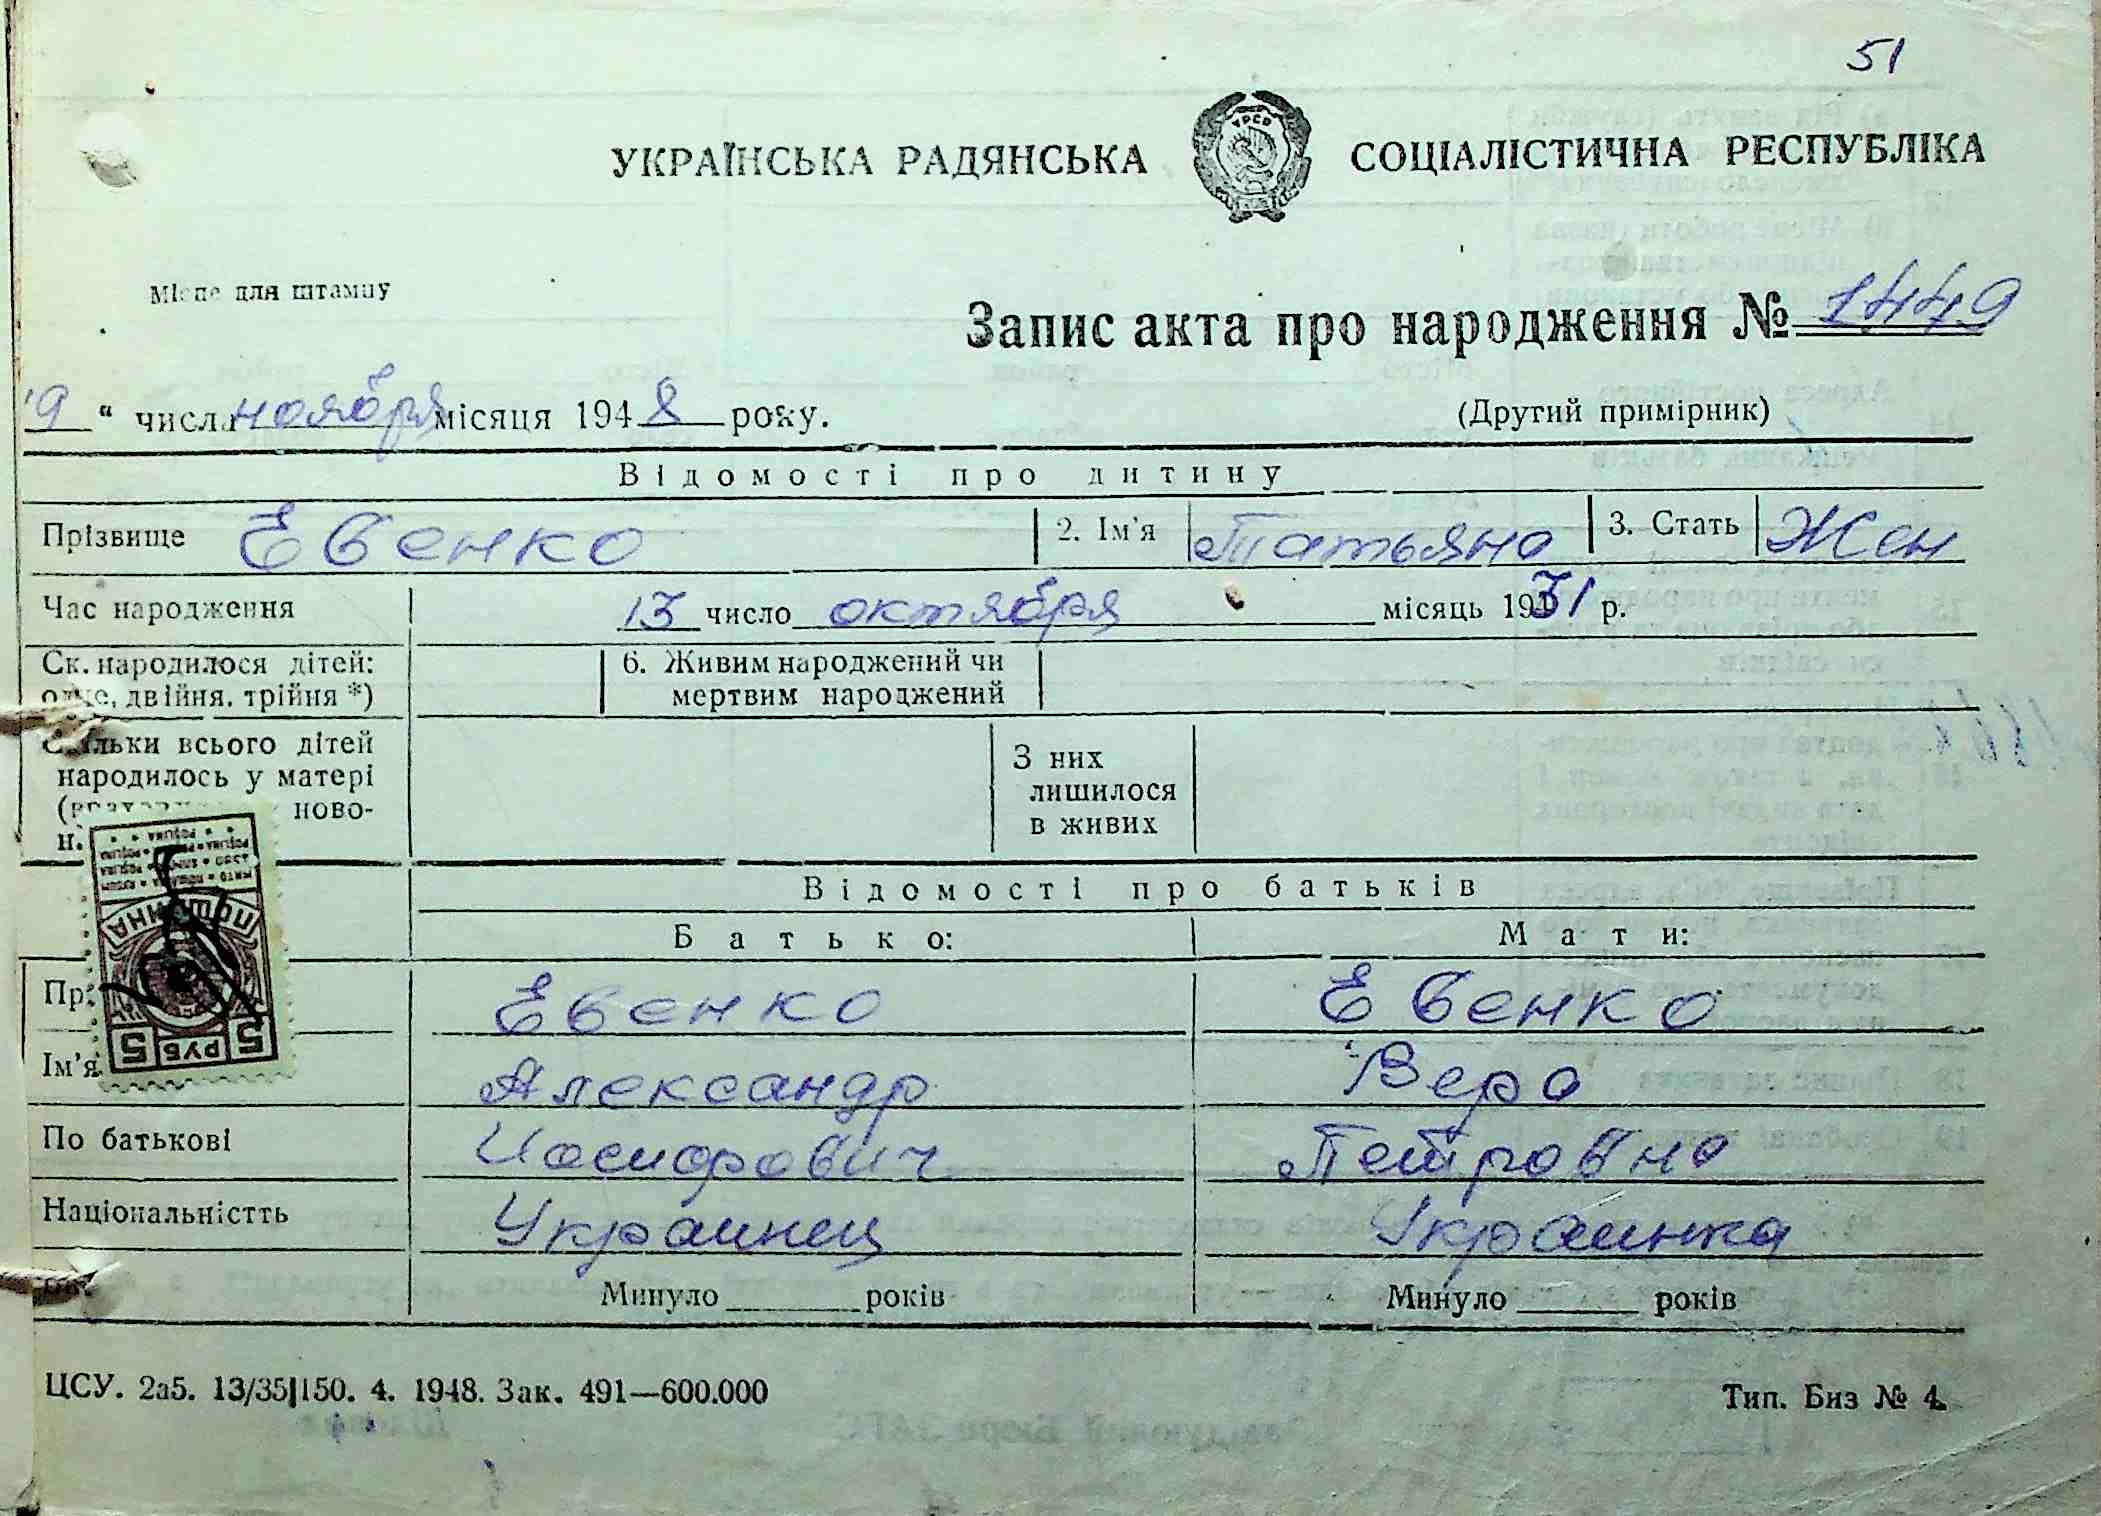 51
УКРАЇНСЬКА РАДЯНСЬКА СОЦІАЛІСТИЧНА РЕСПУБЛІКА
УРСР
Місце для штампу
Запис акта про народження № 1449
"9" числа ноября місяця 1948 року.
(Другий примірник)
Відомості про дитину
Прізвище Евенко 2. Ім'я Татьяна 3. Стать Жен
Час народження 13 число октября місяць 1931 р.
Ск. народилося дітей: 6. Живим народжений чи
одне, двійня, трійня *) мертвим народжений
Скільки всього дітей З них
народилось у матері лишилося
ново- в живих
Відомості про батьків
Батько: Мати:
Пр Евенко Евенко
Ім'я Александр Вера
По батькові Иосифович Петровна
Національністть Украинец Украинка
Минуло років Минуло років
ПОШЛИНА
5 РУБ 5
ЦСУ. 2а5. 13/35|150. 4. 1948. Зак. 491—600.000 Тип. Биз № 4.